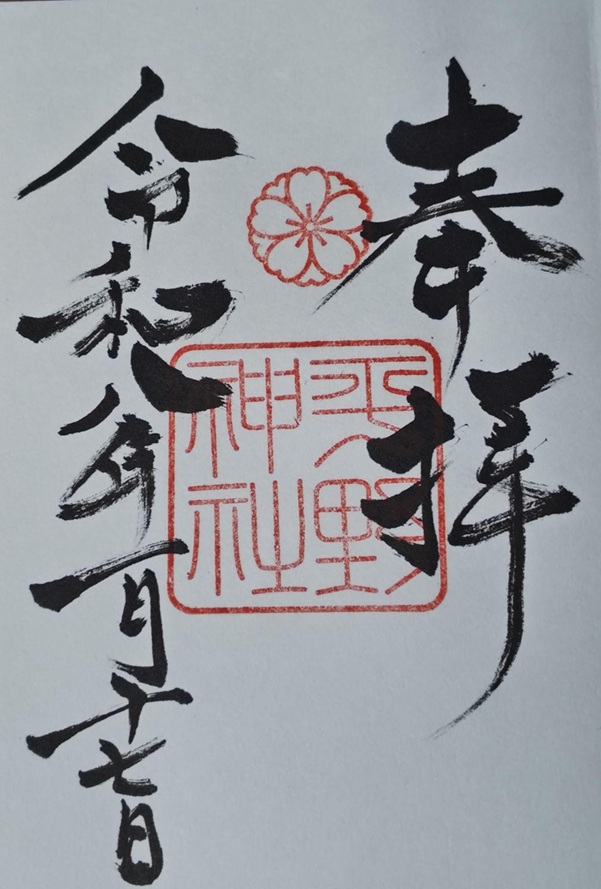 奉拝
平野
神社
令和八年一月十七日